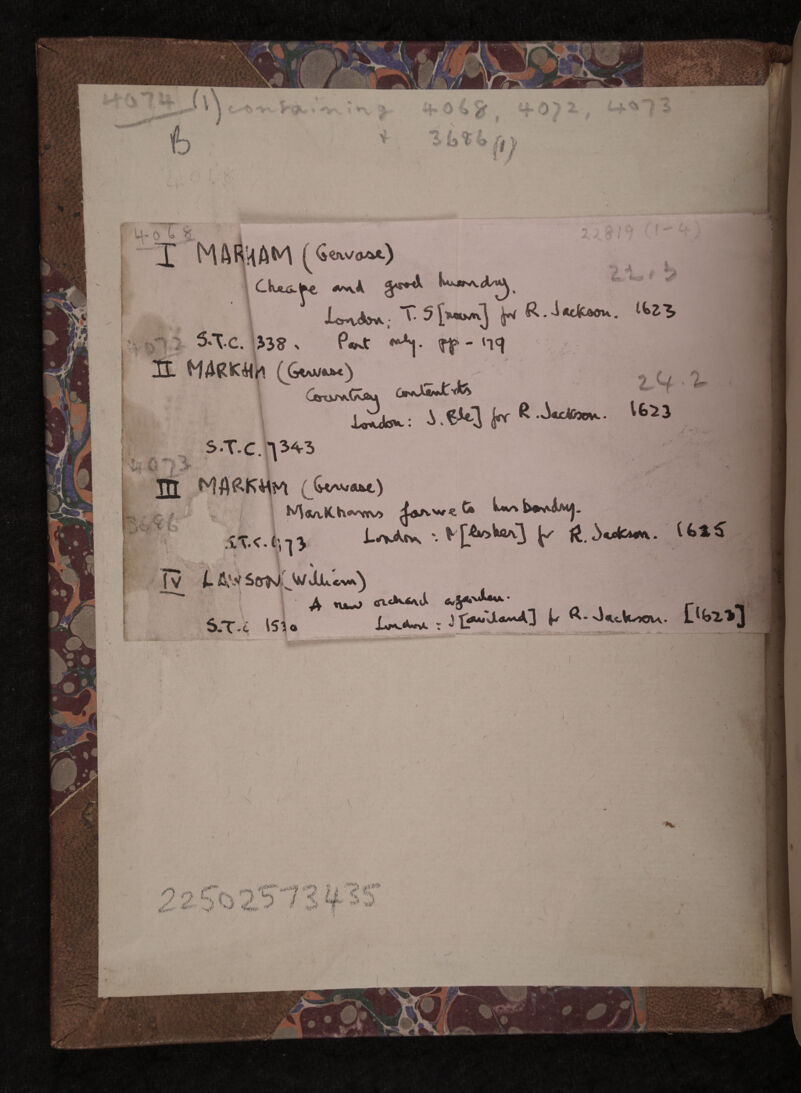 4074 (1) containing 4068, 4072, 4073
B + 3686 (1)
4068
4068 22819 (1-4)
I MARHAM (Gervase)
22.5
Cheape and good husandry.
London: T. S[nowm] for R. Jackson. 1623
4072 S.T.C. 338. Part only. pp - 179
II MARKHM (Gervase)
Countrey contentmts 24.2
London: J. B[le] for R. Jackson. 1623
S.T.C. 7343
4073
III MARKHM (Gervase)
Markhams farwe to husbandry.
3686
S.T.C. London: for R. Jackson. 1625
IV LAWSON (William)
A new orchard a garden.
S.T.C 1530 London: J [aviland] for R. Jackson. [1623]
22502573435